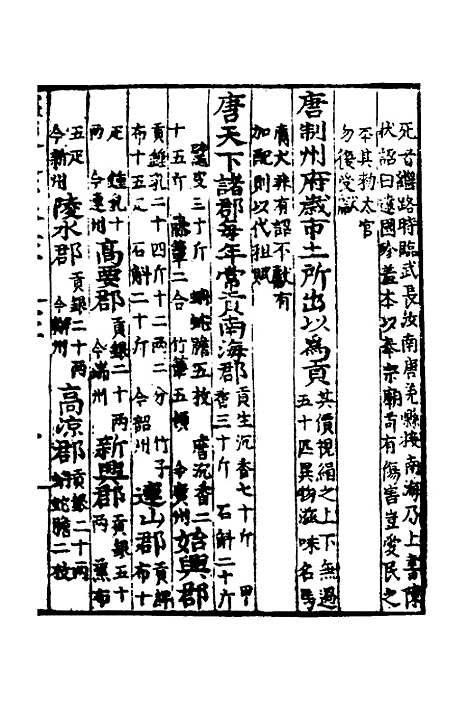 死者繼路時臨武長汝南唐羌縣接南海乃上書陳
狀詔曰遠國珍羞本以奉宗廟苟有傷害豈愛民之
本其勑太官
勿復受獻
唐制州府歲市土所出以為貢其價視絹之上下無過
五十匹異物滋味名馬
鷹犬非有詔不獻有
加配則以代租賦
唐天下諸郡每年常貢南海郡貢生沉香七十斤 甲
香三十斤 石斛二十斤
鼈皮三十斤 蚺蛇膽五枚 詹沉香二
十五斤 藤簟二合 竹簟五領 今廣州始興郡
貢鍾乳二十四斤十二兩二分 竹子
布十五疋 石斛二十斤 今韶州連山郡貢細
布十
疋 鍾乳十
兩 今連州高要郡貢銀二十兩
今端州新興郡貢銀五十
兩 蕉布
五疋
今新州陵水郡貢銀二十兩
今辯州高凉郡貢銀二十兩
蚺蛇膽二枚